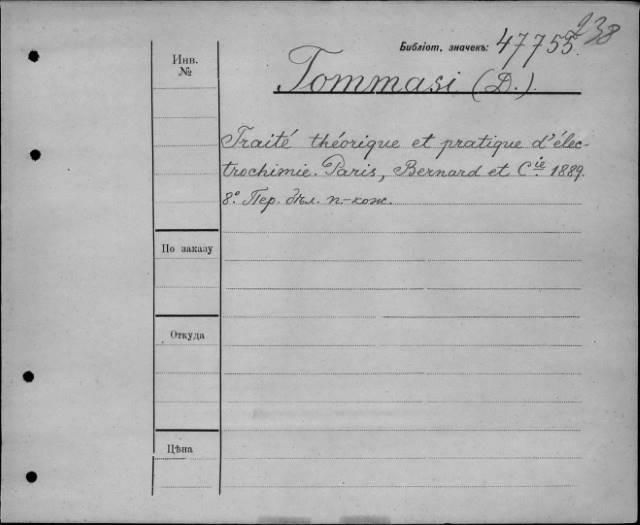 238
Библіот. значекъ: 47755.
Инв.
№
Tommasi (D.).
Traité théorique et pratique d'élec-
trochimie. Paris, Bernard et Cie. 1889.
8º. Пер. дѣл. п.-кож.
По заказу
Откуда
Цѣна